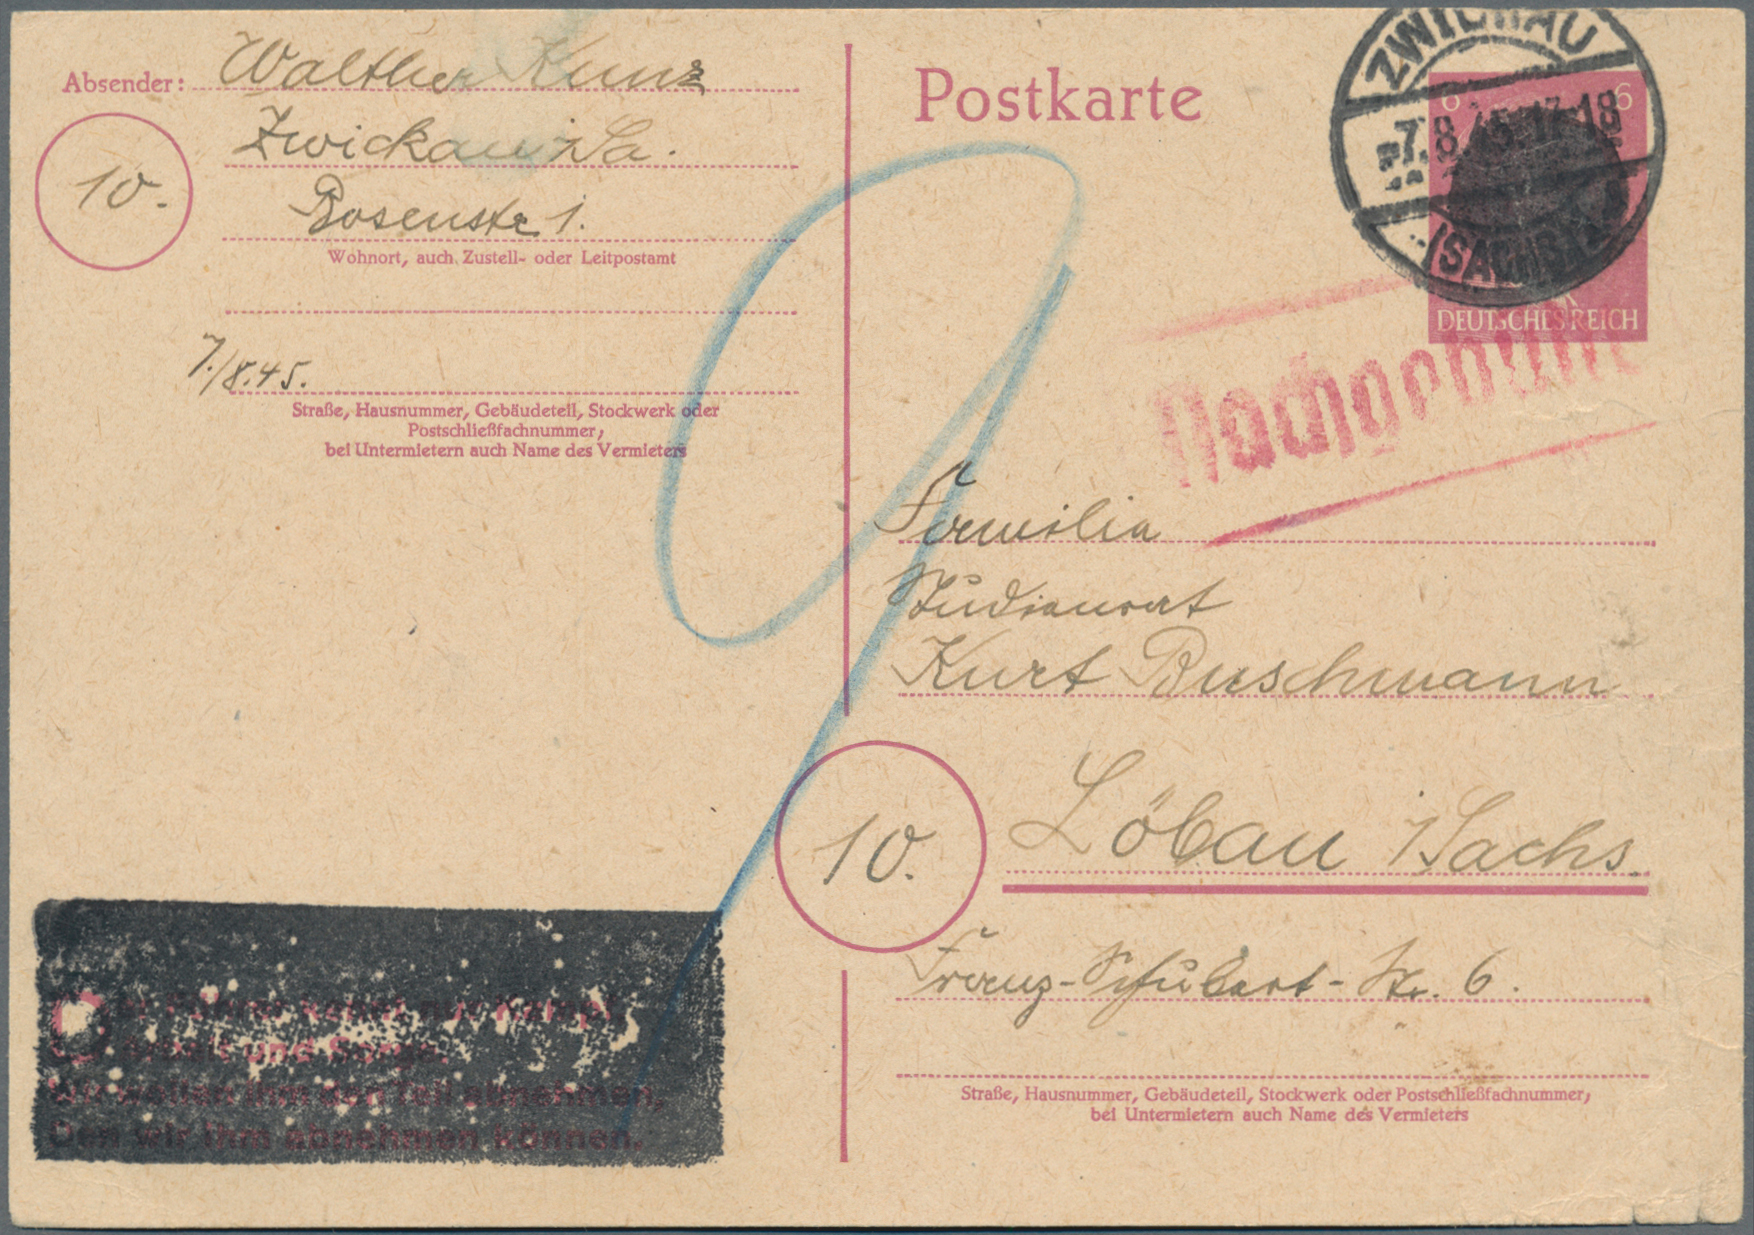 Absender: Walther Kunz
Zwickau i/Sa.
10.
Bosenstr 1.
Wohnort, auch Zustell- oder Leitpostamt
7./8.45.
Straße, Hausnummer, Gebäudeteil, Stockwerk oder
Postschließfachnummer,
bei Untermietern auch Name des Vermieters
und Sorge.
Wir wollen ihm den Teil abnehmen,
Den wir ihm abnehmen können.
9
Postkarte
ZWICKAU
-7.8.45.17-18
(SACHS)
6 6
DEUTSCHES REICH
Nachgebühr
Familie
Studienrat
Kurt Buschmann
10.
Löbau i/Sachs.
Franz-Schubert-Str. 6.
Straße, Hausnummer, Gebäudeteil, Stockwerk oder Postschließfachnummer,
bei Untermietern auch Name des Vermieters